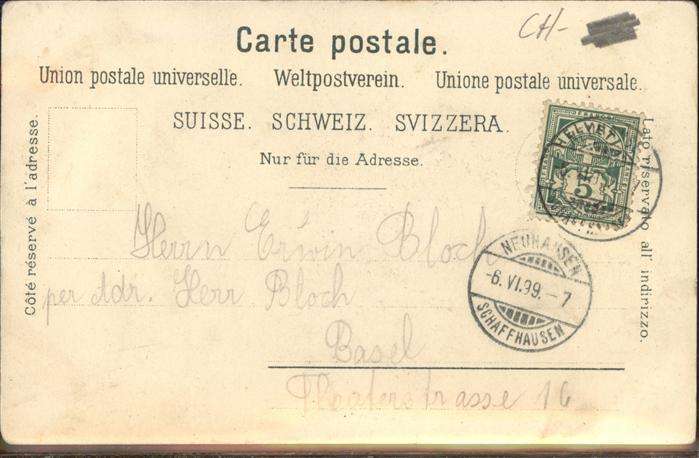 CH-
Carte postale.
Union postale universelle. Weltpostverein. Unione postale universale.
SUISSE. SCHWEIZ. SVIZZERA.
Nur für die Adresse.
Côté réservé à l'adresse.
Lato riservato all' indirizzo.
HELVETIA
5
NEUHAUSEN
-6.VI.99.-7
SCHAFFHAUSEN
Herrn Erwin Bloch
per Adr. Herr Bloch
Basel
Theaterstrasse 16